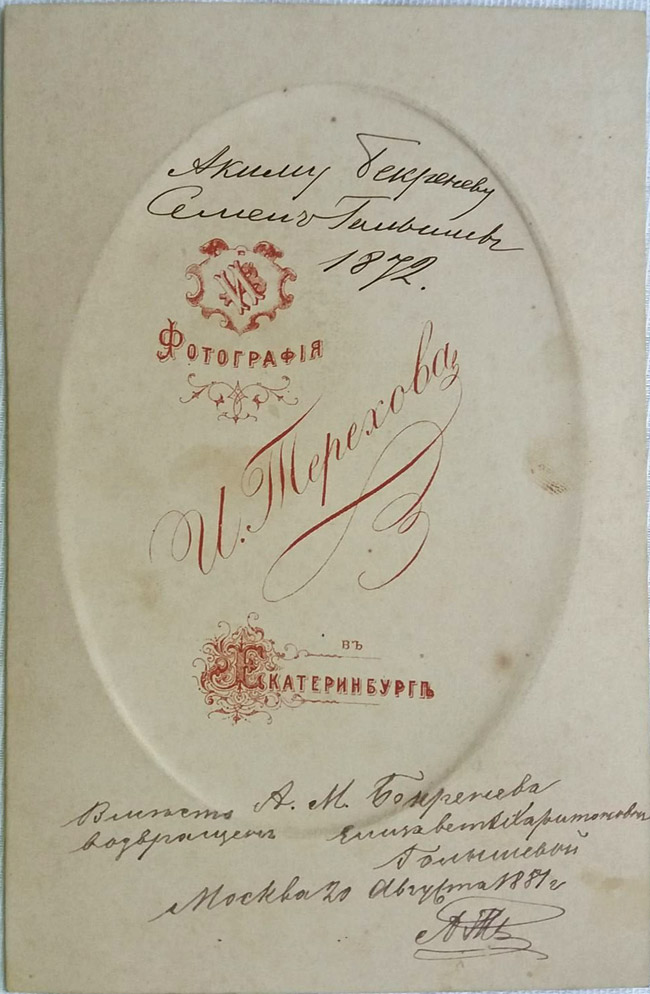 Акиму Бекреневу
Семенъ Голышевъ
1872.
Фотографія
И. Терехова
въ
Екатеринбургѣ
А. М. Бекренева
возвращенъ Елизаветѣ Харитоновнѣ
Голышевой
Москва 20 Августа 1881 г